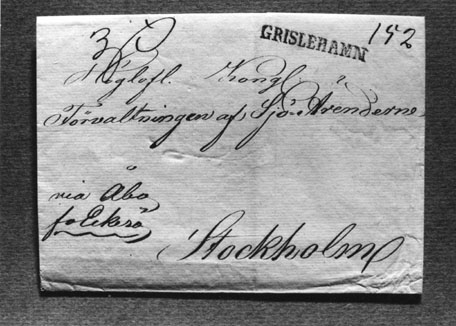 GRISLEHAMN 152
Höglofl. Kongl.
Förvaltningen af Sjö-Ärenderne
via Åbo
Stockholm